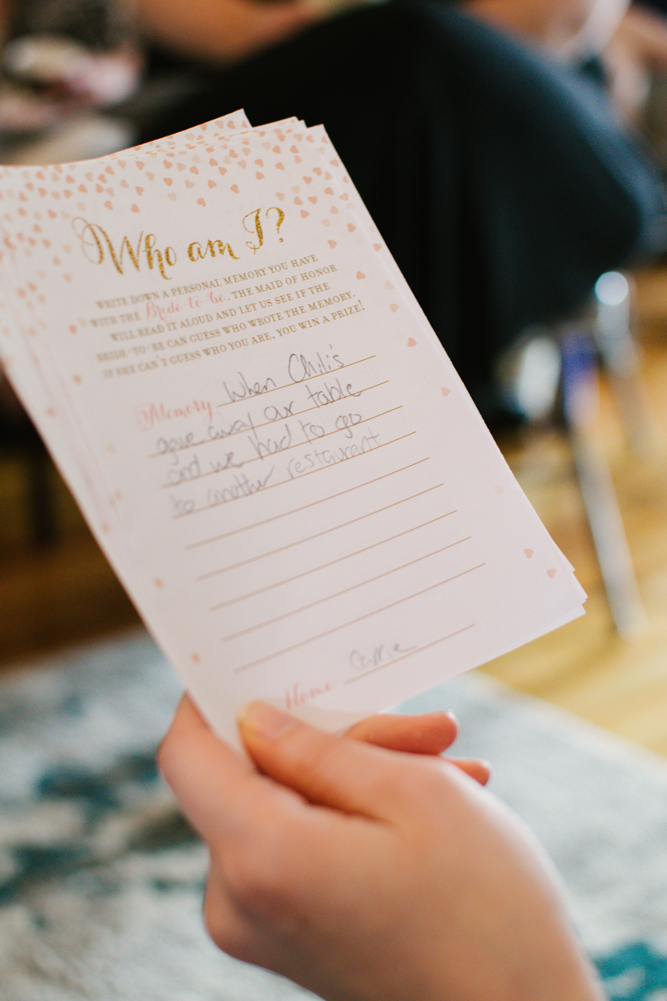 Who am I?
WRITE DOWN A PERSONAL MEMORY YOU HAVE
WITH THE Bride-to-be. THE MAID OF HONOR
WILL READ IT ALOUD AND LET US SEE IF THE
BRIDE-TO-BE CAN GUESS WHO WROTE THE MEMORY.
IF SHE CAN'T GUESS WHO YOU ARE, YOU WIN A PRIZE!
Memory When Chili's
gave away our table
and we had to go
to another restaurant
Name